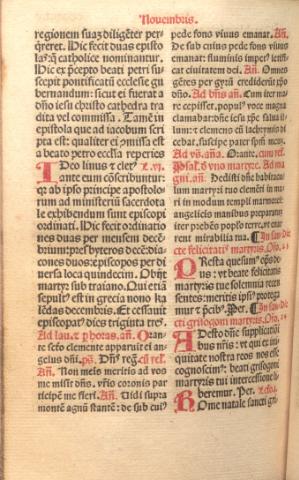 Nouembris.
regionem suaʒ diligēter per-
q̄reret. Hic fecit duas episto
las q̄ catholice nominantur.
Hic ex p̄cepto beati petri su-
scepit pontificatū ecclesie gu-
bernandum: sicut ei fuerat a
dn̄o iesu christo cathedra tra
dita vel commissa. Tamē in
epistola que ad iacobum scri
pta est: qualiter ei ꝯmissa est
a beato petro ecclia reperies
Ideo linus ⁊ clet⁹
ante eum cōscribuntur:
qꝛ ab ipso principe apostolo-
rum ad ministeriū sacerdota
le exhibendum sunt episcopi
ordinati. Hic fecit ordinatio
nes duas per mensem decē-
brium: p̄sbyteros decē: dia-
cones duos: episcopos per di
uersa loca quindecim. Obijt
martyr sub traiano. Qui etiā
sepult⁹ est in grecia nono ka
lēdas decembris. Et cessauit
episcopat⁹ dies triginta tres.
Ad lau. ⁊ p horas. añ. Oran-
te sctō clemente apparuit ei an-
gelus dn̄i. ps̄. Dn̄s regn̄.
Añ. Non meis meritis ad vos
me misit dn̄s. vr̄is coronis par
ticipē me fieri. Añ. Uidi supra
montē agnū stantē: de sub cui⁹
pede fons viuus emanat. Añ.
De sub cuius pede fons viuus
emanat: fluminis impet⁹ letifi-
cat ciuitatem dei. Añ. Omnes
gentes per gyrū crediderūt xp̄o
dn̄o. Ad bn̄dictus añ. Cum iter ma-
re cepisset, popul⁹ voce magna
clamabat: dn̄e iesu xp̄e salua il-
lum: ⁊ clemens cū lachrymis di
cebat, suscipe pater sp̄m meū.
Ad vs̄. añ. Orante,
Ad ma-
gni. añ. Dedisti dn̄e habitacu-
lum martyri tuo clemēti in ma-
ri in modum templi marmorei
angelicis manibus preparatū:
iter prebēs populo terre, vt enar
rent mirabilia tua. In san-
cte felicitat⁹ martyris. Oro.
Presta quesum⁹ op̄s de-
us: vt beate felicitatis
martyris tue solemnia recen
sentes: meritis ipsi⁹ protega
mur ⁊ p̄cib⁹. Per. In san-
cti grisogoni martyris. Oro.
Adesto dn̄e supplicatiōi
bus nr̄is: vt qui ex ini-
quitate nostra reos nos esse
cognoscim⁹: beati grisogoni
martyris tui intercessione li-
beremur. Per.
Rome natale sancti gri